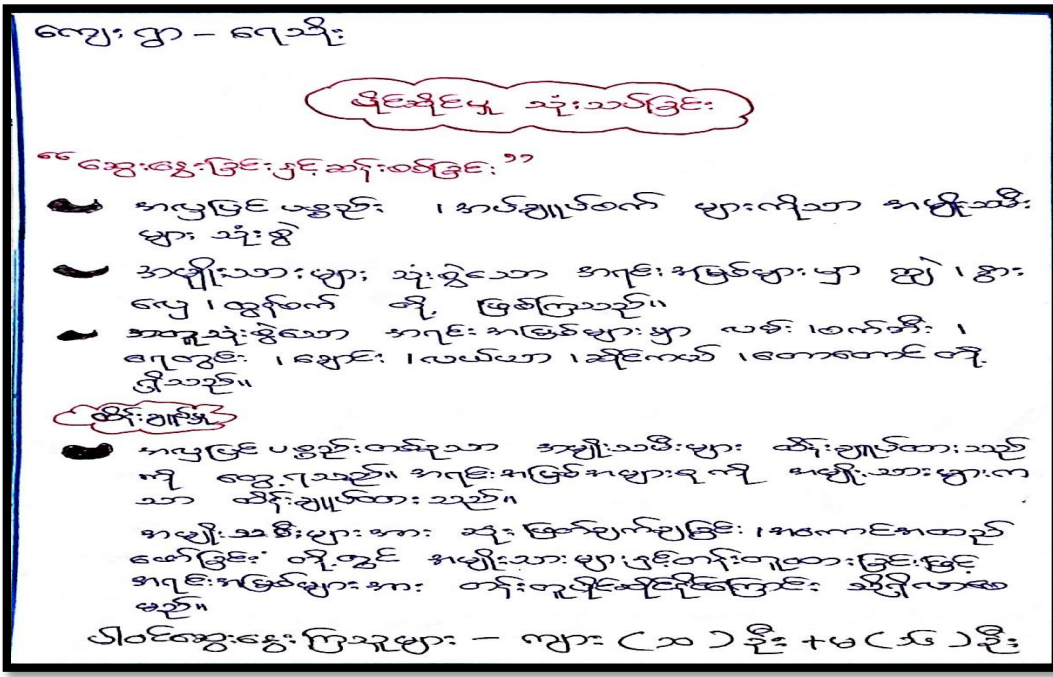 ကျေးရွာ - ရေသိုး
ပိုင်ဆိုင်မှု သုံးသပ်ခြင်း
“ဆွေးနွေးခြင်းနှင့်ဆန်းစစ်ခြင်း”
အလှပြင်ပစ္စည်း ၊ အပ်ချူပ်စက် များကိုသာ အမျိုးသမီး
များ သုံးစွဲ
အမျိုးသားများ သုံးစွဲသော အရင်းအမြစ်များမှာ ကျွဲ ၊ နွား
လှေ ၊ ထွန်စက် တို့ ဖြစ်ကြသည်။
အတူသုံးစွဲသော အရင်းအမြစ်များမှာ လမ်း ၊စက်ဘီး ၊
ရေတွင်း ၊ချောင်း ၊လယ်ယာ ၊ဆိုင်ကယ် ၊တောတောင် တို့
ရှိသည်။
ထိန်းချုပ်မှု
အလှပြင်ပစ္စည်းတစ်ခုသာ အမျိုးသမီးများ ထိန်းချူပ်ထားသည်
ကို တွေ့ရသည်။ အရင်းအမြစ်အများစုကို အမျိုးသားများက
သာ ထိန်းချူပ်ထားသည်။
အမျိုးသမီးများအား ဆုံးဖြတ်ချက်ချခြင်း ၊အကောင်အထည်
ဖော်ခြင်း တို့တွင် အမျိုးသားများနှင့်တန်းတူထားခြင်းဖြင့်
အရင်းအမြစ်များအား တန်းတူပိုင်ဆိုင်နိုင်ကြောင်း သိရှိလာပေ
မည်။
ပါဝင်ဆွေးနွေးကြသူများ - ကျား ( ၁၁ ) ဦး + မ ( ၁၆ ) ဦး